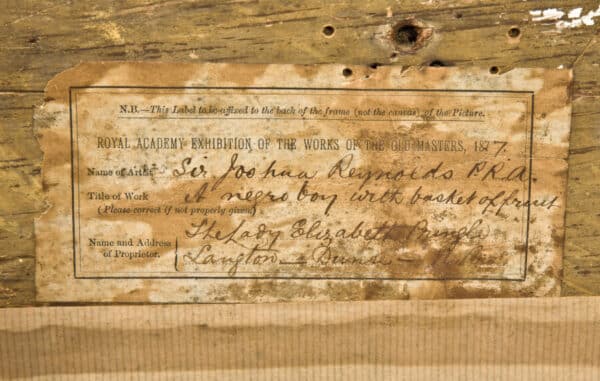 N.B.—This Label to be affixed to the back of the frame (not the canvas) of the Picture.
ROYAL ACADEMY EXHIBITION OF THE WORKS OF THE OLD MASTERS, 1877.
Name of Artist Sir Joshua Reynolds P.R.A.
Title of Work A negro boy with basket of fruit
(Please correct if not properly given)
The Lady Elizabeth Pringle
Name and Address of Proprietor. Langton — Dunse —